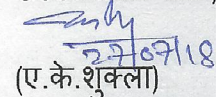 27/07/18
(ए.के.शुक्ला)